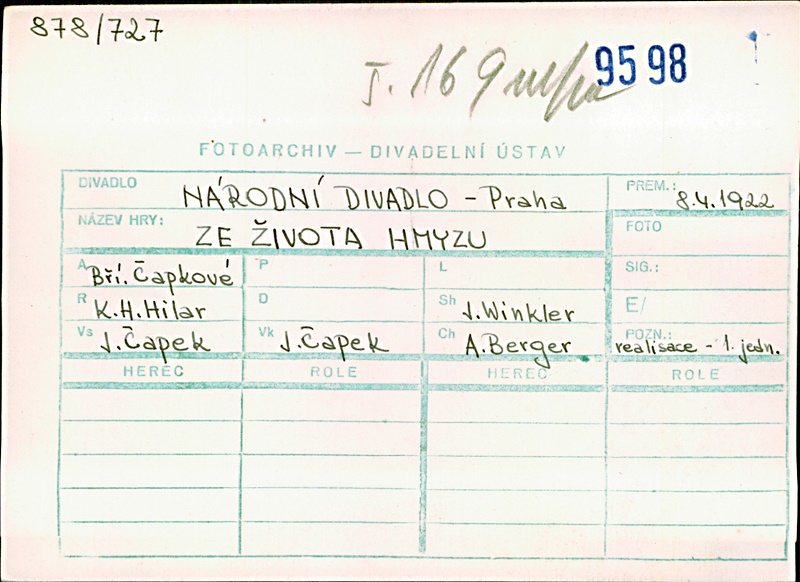 878/727
I. 169
9598
FOTOARCHIV — DIVADELNÍ ÚSTAV
DIVADLO NÁRODNÍ DIVADLO - Praha
PREM.: 8.4.1922
NÁZEV HRY: ZE ŽIVOTA HMYZU
FOTO
A Bří. Čapkové P L
SIG.:
R K.H.Hilar D Sh J.Winkler
E/
Vs J.Čapek Vk J.Čapek Ch A.Berger
POZN.: realisace - 1. jedn.
HEREC ROLE HEREC ROLE